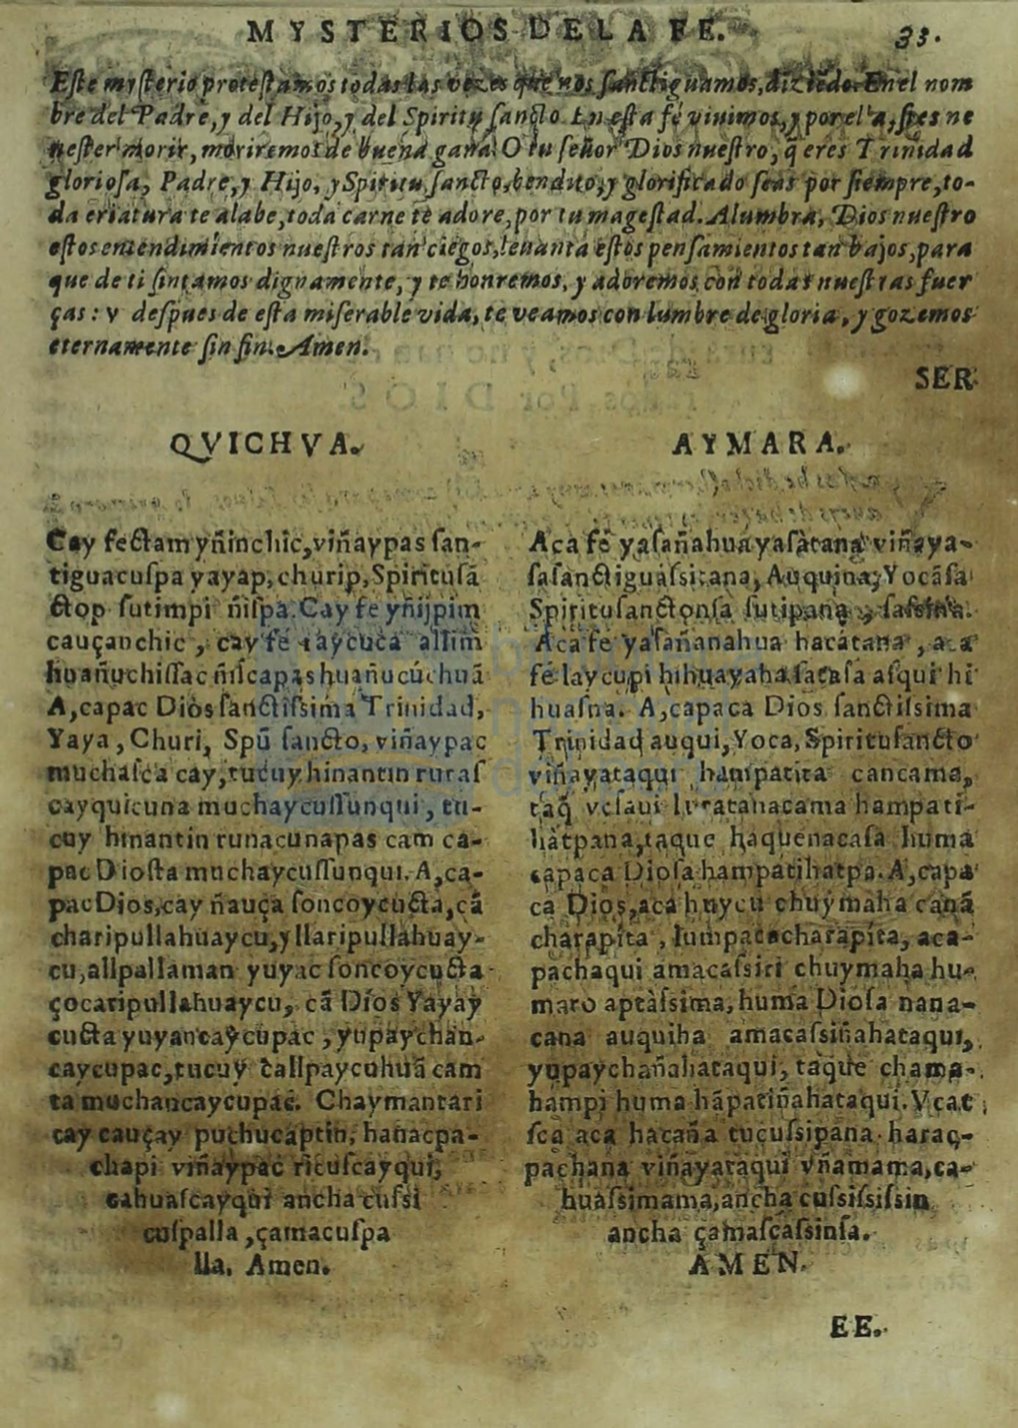 MYSTERIOS DE LA FE. 33.
Eſte myſterio proteſtamos todas las vezes que nos ſanctiguamos, diziẽdo. En el nom
bre del Padre, y del Hijo, y del Spiritu ſancto. En eſta fé viuimos, y por ella, ſi es ne
neſter morir, moriremos de buena gana. O tu ſeñor Dios nueſtro, q̃ eres Trinidad
glorioſa, Padre, y Hijo, y Spiritu ſancto, bendito, y glorificado ſeas por ſiempre, to-
da criatura te alabe, toda carne te adore, por tu mageſtad. Alumbra, Dios nueſtro
eſtos entendimientos nueſtros tan ciegos, leuanta eſtos penſamientos tan bajos, para
que de ti ſintamos dignamente, y te honremos, y adoremos con todas nueſtras fuer
ças: y deſpues de eſta miſerable vida, te veamos con lumbre de gloria, y gozemos
eternamente ſin fin. Amen.
SER
QVICHVA.
Cay fectam yñinchic, viñaypas ſan-
tiguacuſpa yayap, churip, Spiritusã
ctop ſutimpi ñiſpa. Cay fe yñijpim
cauçanchic, cay fé raycuca allim
huañuchiſſac ñiſcapas huañucúchuã
A, capac Dios ſanctiſsima Trinidad,
Yaya, Churi, Spũ ſancto, viñaypac
muchaſca cay, tucuy hinantin ruraſ
cayquicuna muchaycuſſunqui, tu-
cuy hinantin runacunapas cam ca-
pac Dioſta muchaycuſſunqui. A, ca-
pac Dios, cay ñauça ſoncoycucta, cã
charipullahuaycu, yllaripullahuay-
cu, allpallaman yuyac ſoncoycucta
çocaripullahuaycu, cã Dios Yayay
cucta yuyancaycupac, yupaychan-
caycupac, tucuy callpaycuhuã cam
ta muchancaycupac. Chaymantari
cay cauçay puchucaptin, hanacpa-
chapi viñaypac ricuſcayqui,
cahuaſcayqui ancha cuſsi
cuſpalla, çamacuſpa
lla. Amen.
AYMARA.
Aca fé yaſañahua yaſàtana viñaya-
ſa ſanctiguaſsitana, Auquina, Yocãſa
Spirituſanctonſa ſutipana,
Aca fe yaſañanahua hacàtana, aca
fé laycupi hihuayaha ſataſa aſqui hi
huaſna. A, capaca Dios ſanctiſsima
Trinidad auqui, Yoca, Spirituſancto
viñayataqui hampatita cancama,
taq̃ vcſaui luratanacama hampati-
hàtpana, taque haquenacaſa huma
capaca Dioſa hampatihatpa. A, capa
ca Dios, aca huycu chuymaha canã
charapita, lumpacacharapita, aca-
pachaqui amacaſsiri chuymaha hu-
maro aptàſsima, huma Dioſa nana-
cana auquiha amacaſsiñahataqui,
yupaychañahataqui, tàque chama-
hampi huma hãpatiñahataqui. Vcat
ſca aca hacaña tucuſsipana haraç-
pachana viñayataqui vñamama, ca-
huaſsimama, ancha cuſsiſsiſsin
ancha çamaſcaſsinſa.
AMEN.
EE.